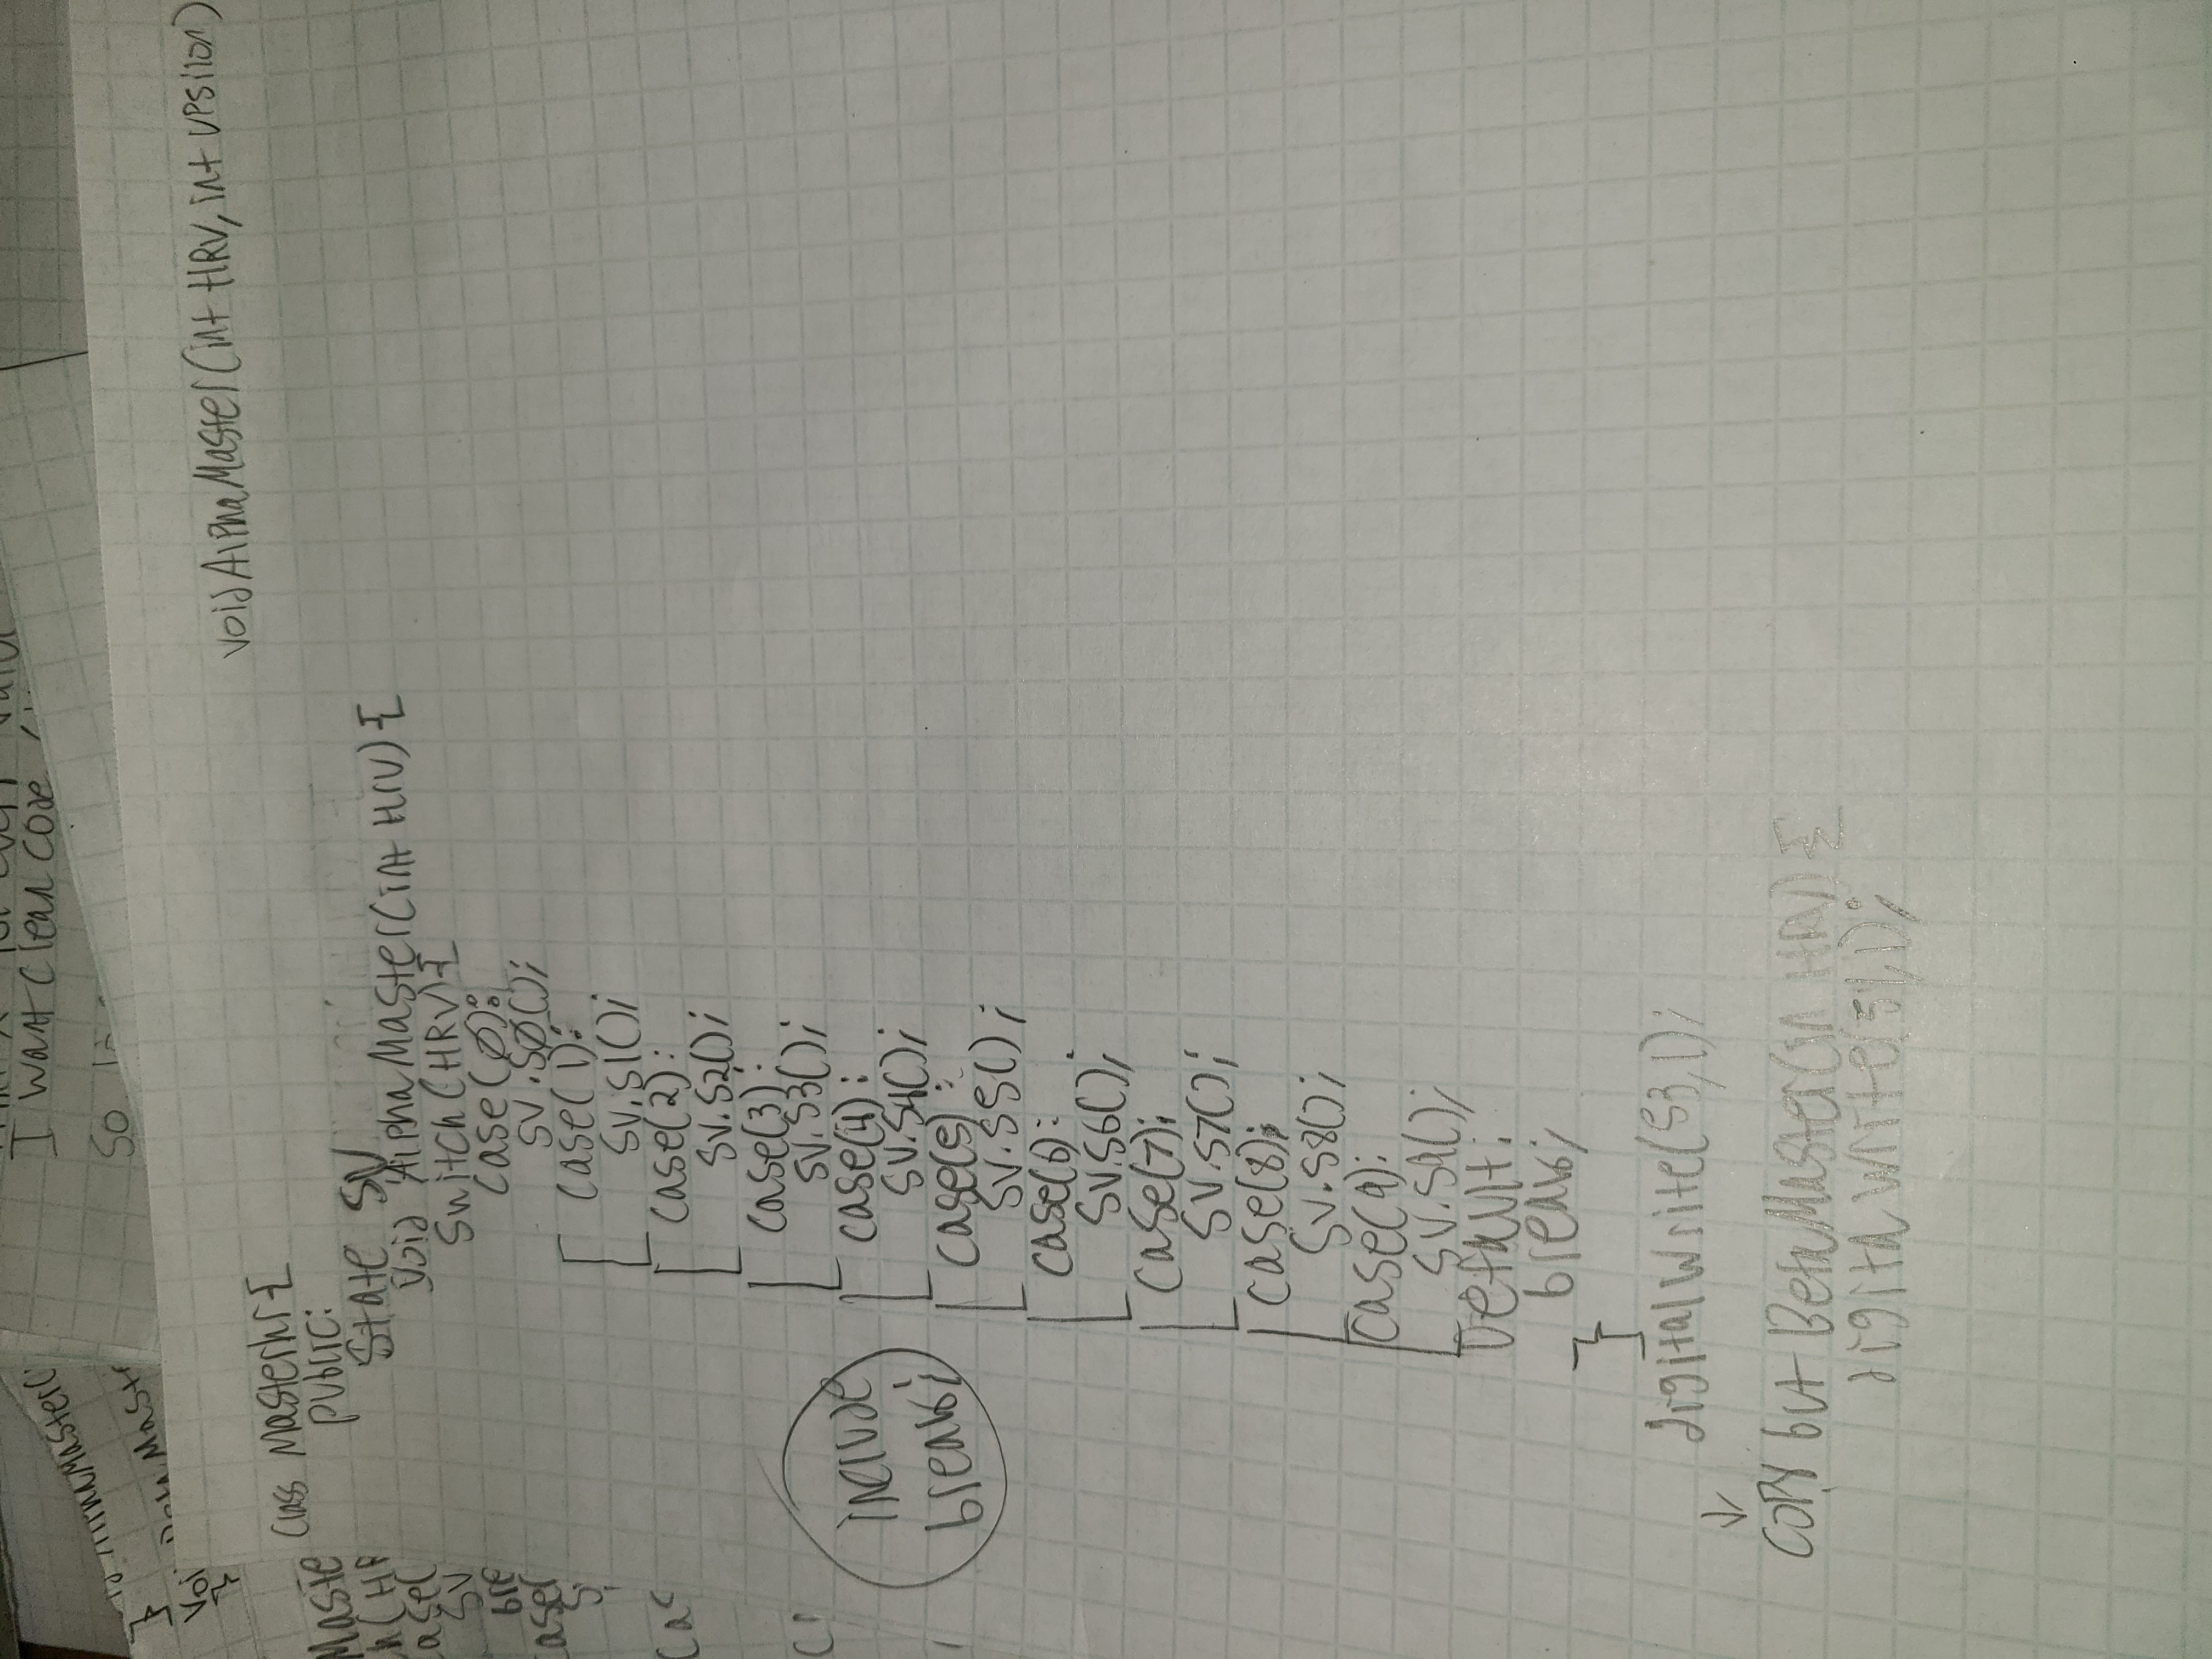 I want clean code
So
AlphaMaster(
}
Voi
}
Maste
case(
SV
bre
S
Cas
void AlphaMaster(int HRV, int Upsilon)
Class Masterhr {
public:
State SV
void AlphaMaster(int HrV) {
Switch (HRV) {
case(0):
SV.S0();
case(1):
SV.S1();
case(2):
SV.S2();
case(3):
SV.S3();
case(4):
SV.S4();
include
break;
case(5):
SV.S5();
case(6):
SV.S6();
case(7);
SV.S7();
case(8);
SV.S8();
case(9):
SV.S9();
Default:
break;
}
digitalWrite(53,1);
↓
COPY but BetaMaster(in HRV) {
digitalWrite(51,1);